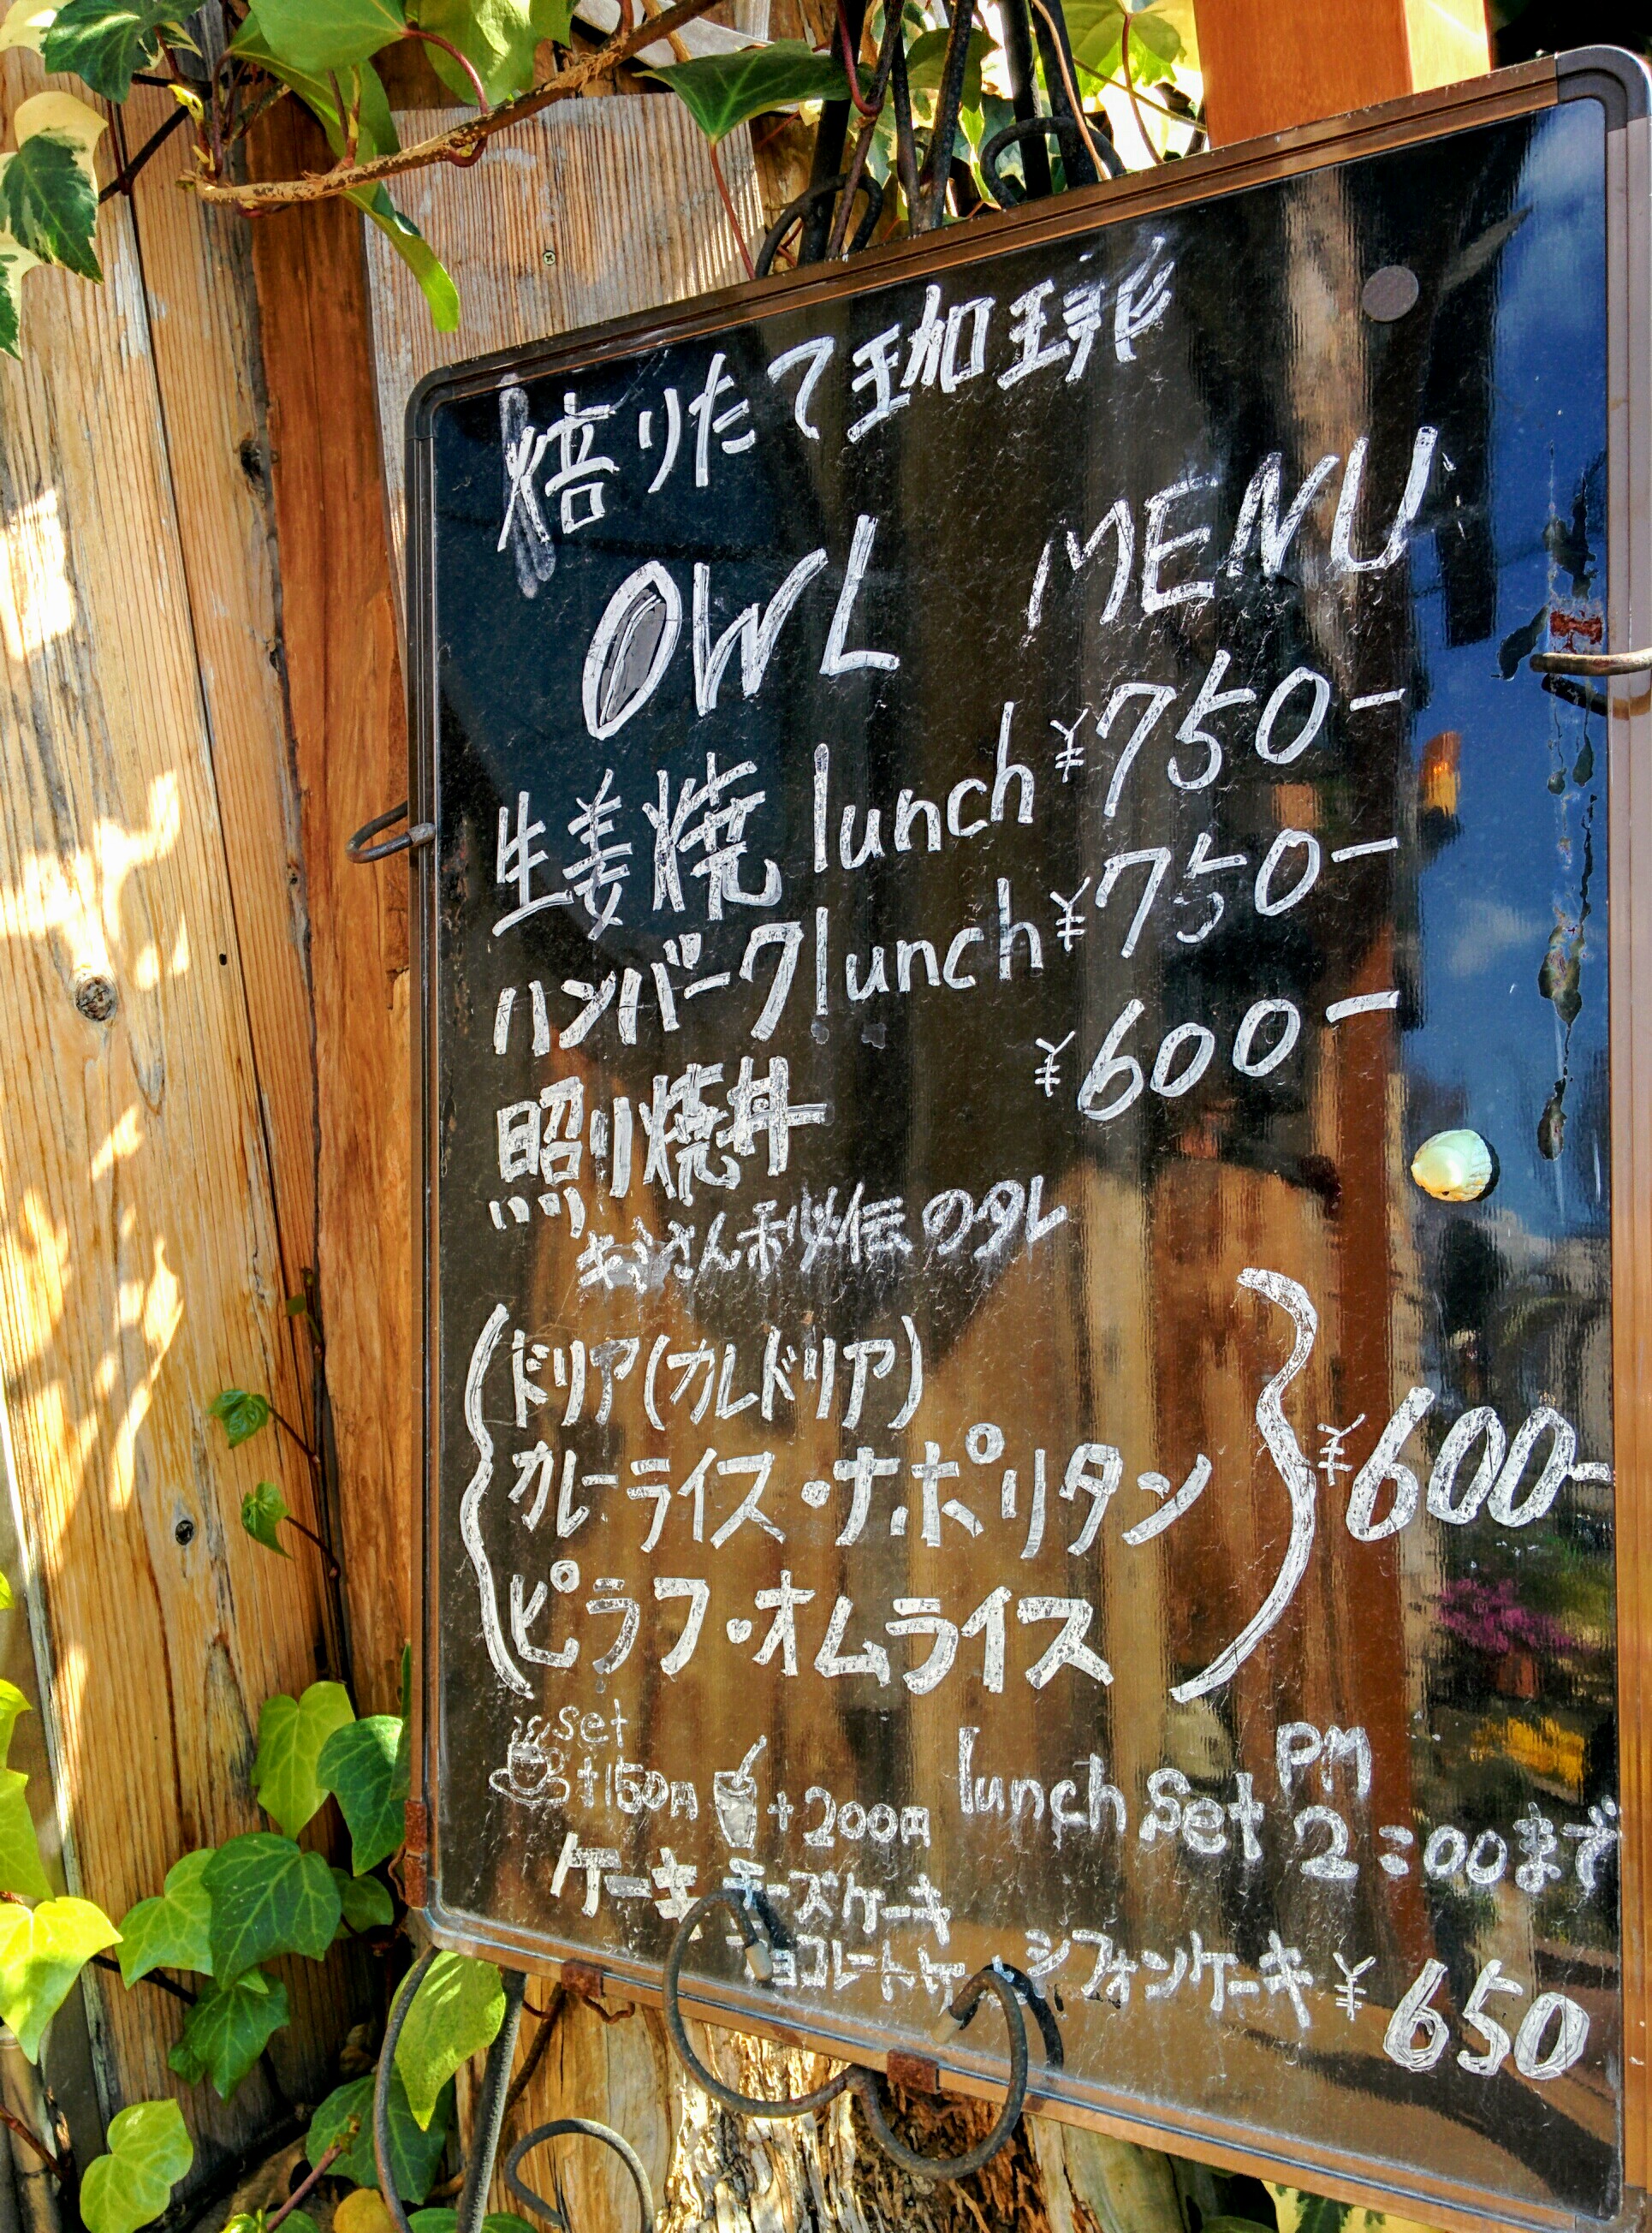 焙りたて珈琲
OWL MENU
生姜焼 lunch ¥750-
ハンバーク lunch ¥750-
照り焼丼 ¥600-
さん秘伝のタレ
ドリア(カレドリア)
カレーライス・ナポリタン
ピラフ・オムライス
¥600-
set
+150円 +200円 lunch set PM 2:00まで
ケーキ チーズケーキ
チョコレートケーキ シフォンケーキ ¥650